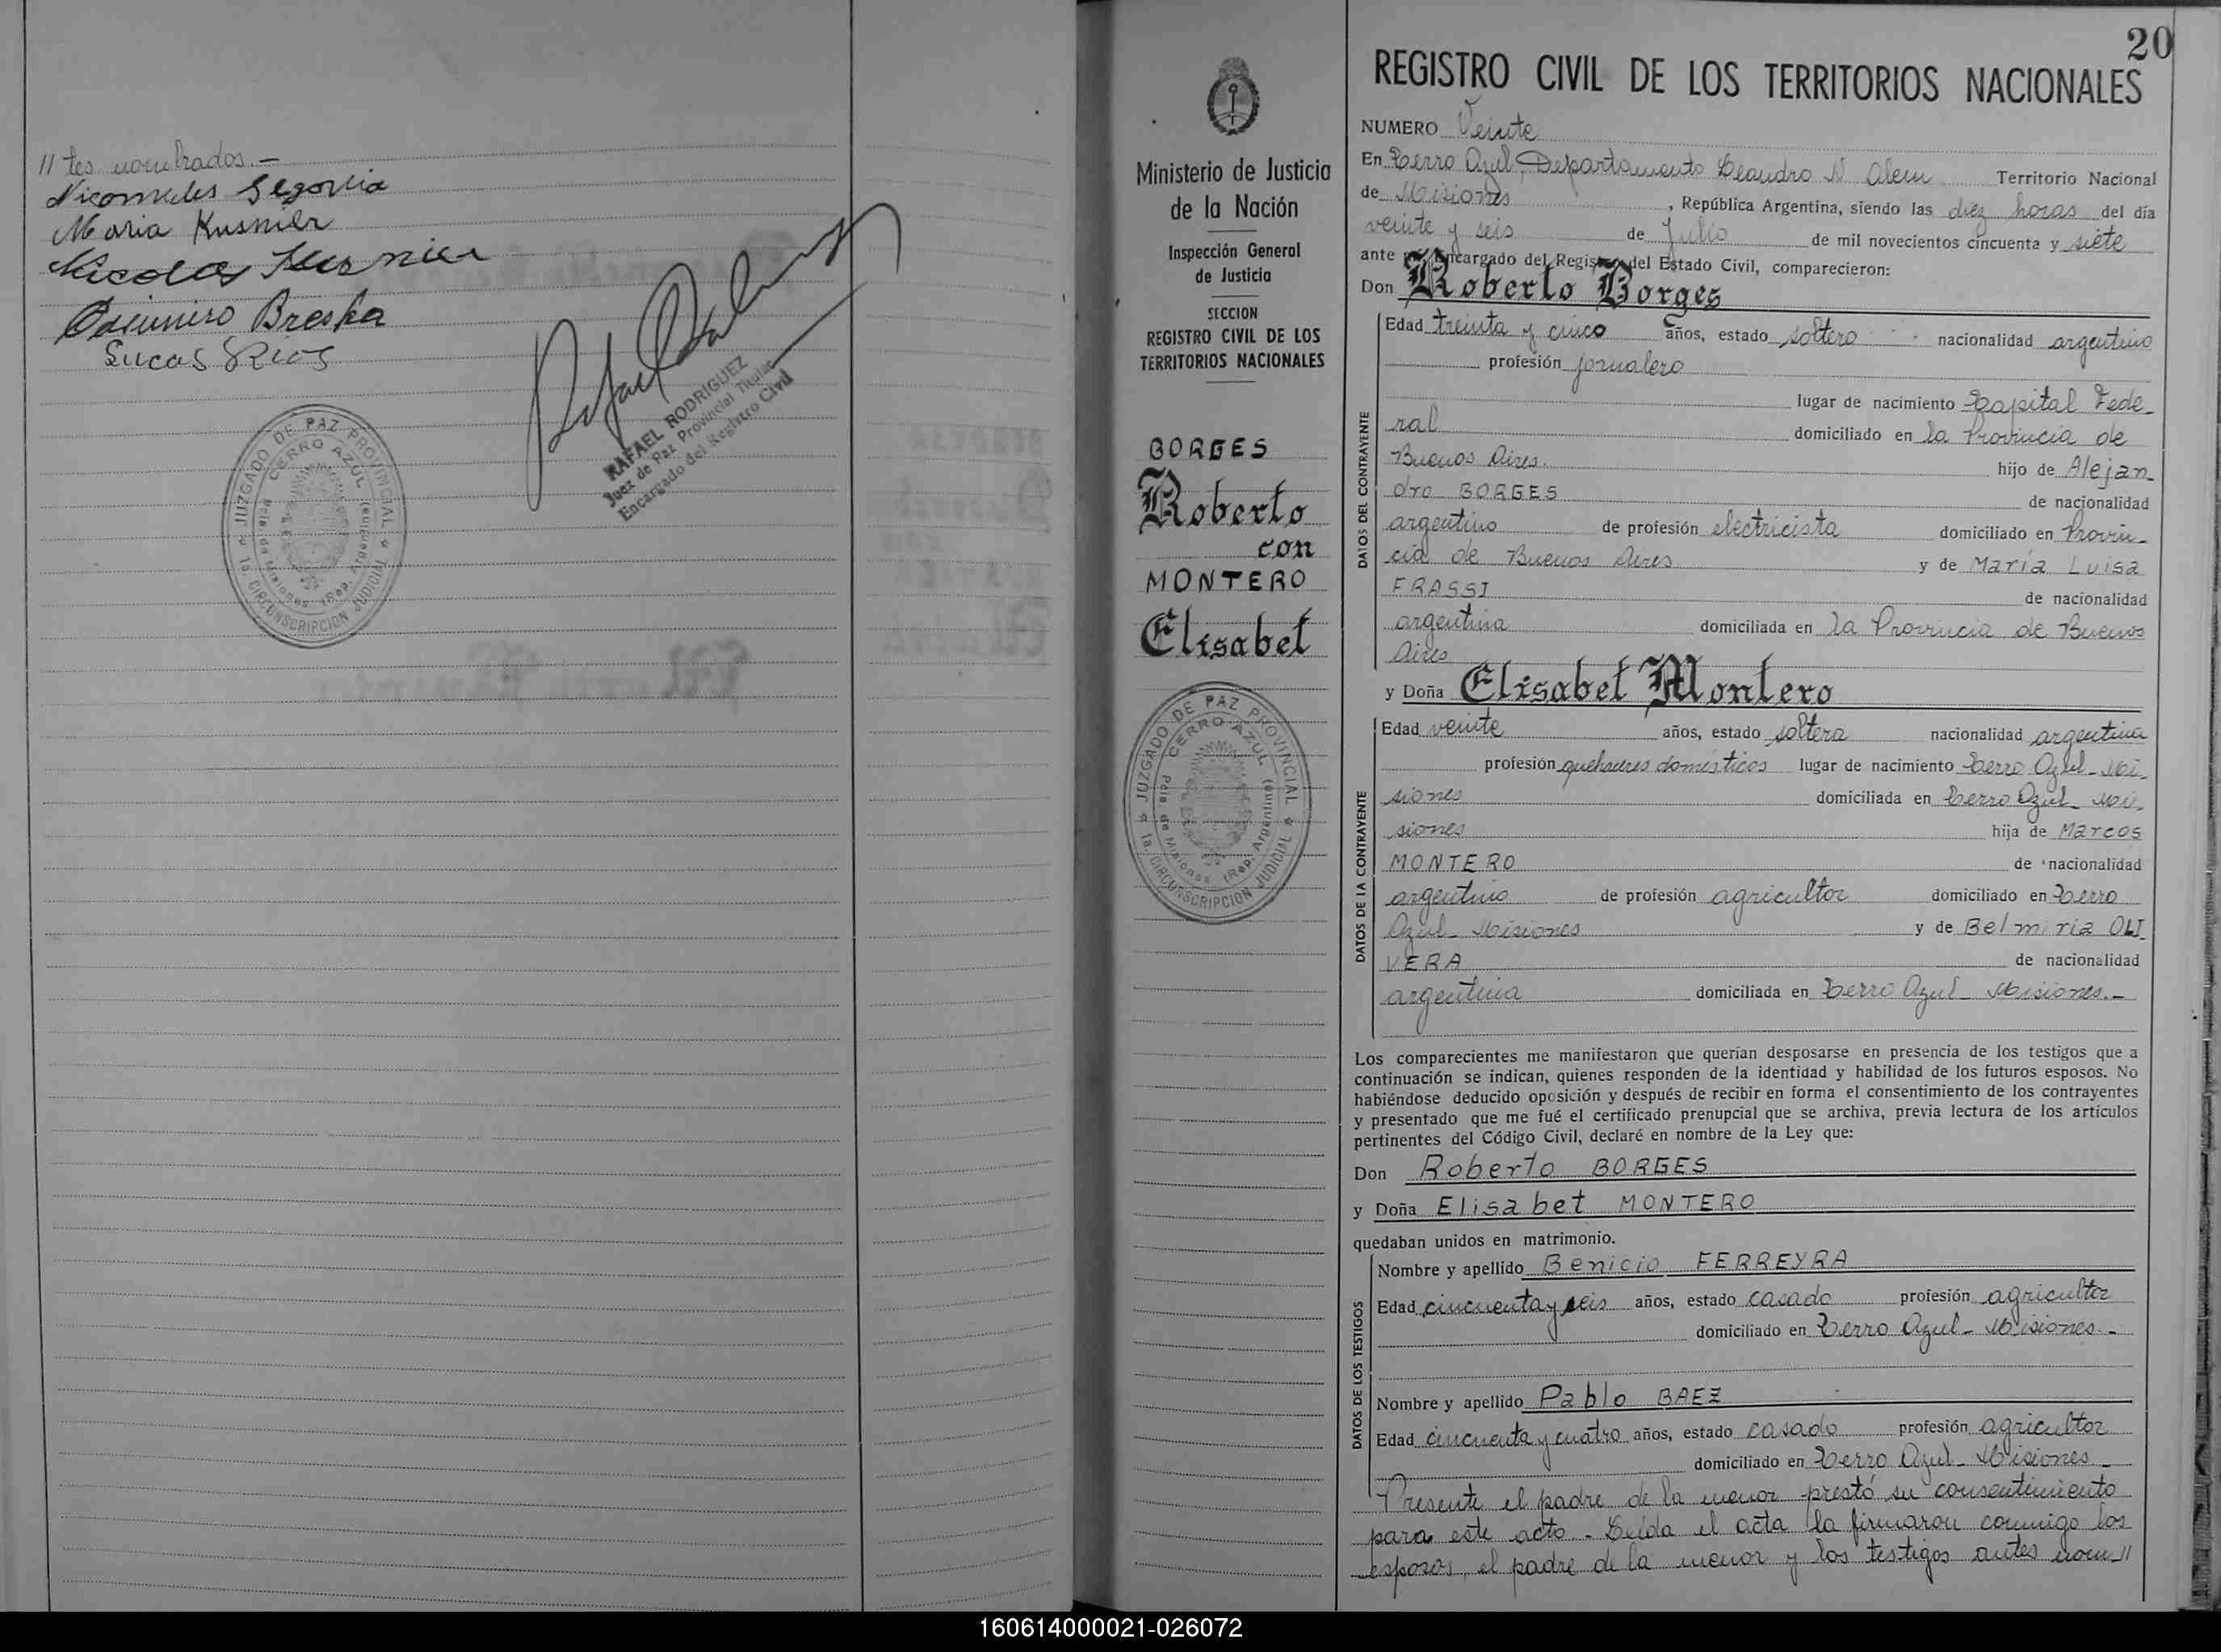 // tes nombrados.-
Nicomedes Segovia
Maria Kusnier
Nicolas Kusnier
Casimiro Breska
Lucas Rios
RAFAEL RODRIGUEZ
Juez de Paz Provincial Titular
Encargado del Registro Civil
JUZGADO DE PAZ PROVINCIAL
CERRO AZUL
Pcia de Misiones (Rep. Argentina)
1a. CIRCUNSCRIPCION JUDICIAL
Ministerio de Justicia
de la Nación
Inspección General
de Justicia
SECCION
REGISTRO CIVIL DE LOS
TERRITORIOS NACIONALES
BORGES
Roberto
con
MONTERO
Elisabet
JUZGADO DE PAZ PROVINCIAL
CERRO AZUL
Pcia de Misiones (Rep. Argentina)
1a. CIRCUNSCRIPCION JUDICIAL
20
REGISTRO CIVIL DE LOS TERRITORIOS NACIONALES
NUMERO Veinte
En Cerro Azul, Departamento Leandro N. Alem Territorio Nacional
de Misiones , República Argentina, siendo las diez horas del día
veinte y seis de Julio de mil novecientos cincuenta y siete
ante el Encargado del Registro del Estado Civil, comparecieron:
Don Roberto Borges
DATOS DEL CONTRAYENTE
Edad treinta y cinco años, estado soltero nacionalidad argentino
profesión jornalero
lugar de nacimiento Capital Fede-
ral domiciliado en la Provincia de
Buenos Aires. hijo de Alejan-
dro BORGES de nacionalidad
argentino de profesión electricista domiciliado en Provin-
cia de Buenos Aires y de María Luisa
FRASSI de nacionalidad
argentina domiciliada en la Provincia de Buenos
Aires
y Doña Elisabet Montero
DATOS DE LA CONTRAYENTE
Edad veinte años, estado soltera nacionalidad argentina
profesión quehaceres domésticos lugar de nacimiento Cerro Azul-Mi-
siones domiciliada en Cerro Azul-Mi-
siones hija de Marcos
MONTERO de nacionalidad
argentino de profesión agricultor domiciliado en Cerro
Azul-Misiones y de Belmiria OLI
VERA de nacionalidad
argentina domiciliada en Cerro Azul-Misiones.-
Los comparecientes me manifestaron que querían desposarse en presencia de los testigos que a
continuación se indican, quienes responden de la identidad y habilidad de los futuros esposos. No
habiéndose deducido oposición y después de recibir en forma el consentimiento de los contrayentes
y presentado que me fué el certificado prenupcial que se archiva, previa lectura de los artículos
pertinentes del Código Civil, declaré en nombre de la Ley que:
Don Roberto BORGES
y Doña Elisabet MONTERO
quedaban unidos en matrimonio.
DATOS DE LOS TESTIGOS
Nombre y apellido Benicio FERREYRA
Edad cincuenta y seis años, estado casado profesión agricultor
domiciliado en Cerro Azul-Misiones.-
Nombre y apellido Pablo BAEZ
Edad cincuenta y cuatro años, estado casado profesión agricultor
domiciliado en Cerro Azul-Misiones-
Presente el padre de la menor prestó su consentimiento
para este acto.- Leída el acta la firmaron conmigo los
esposos, el padre de la menor y los testigos antes nom//
160614000021-026072